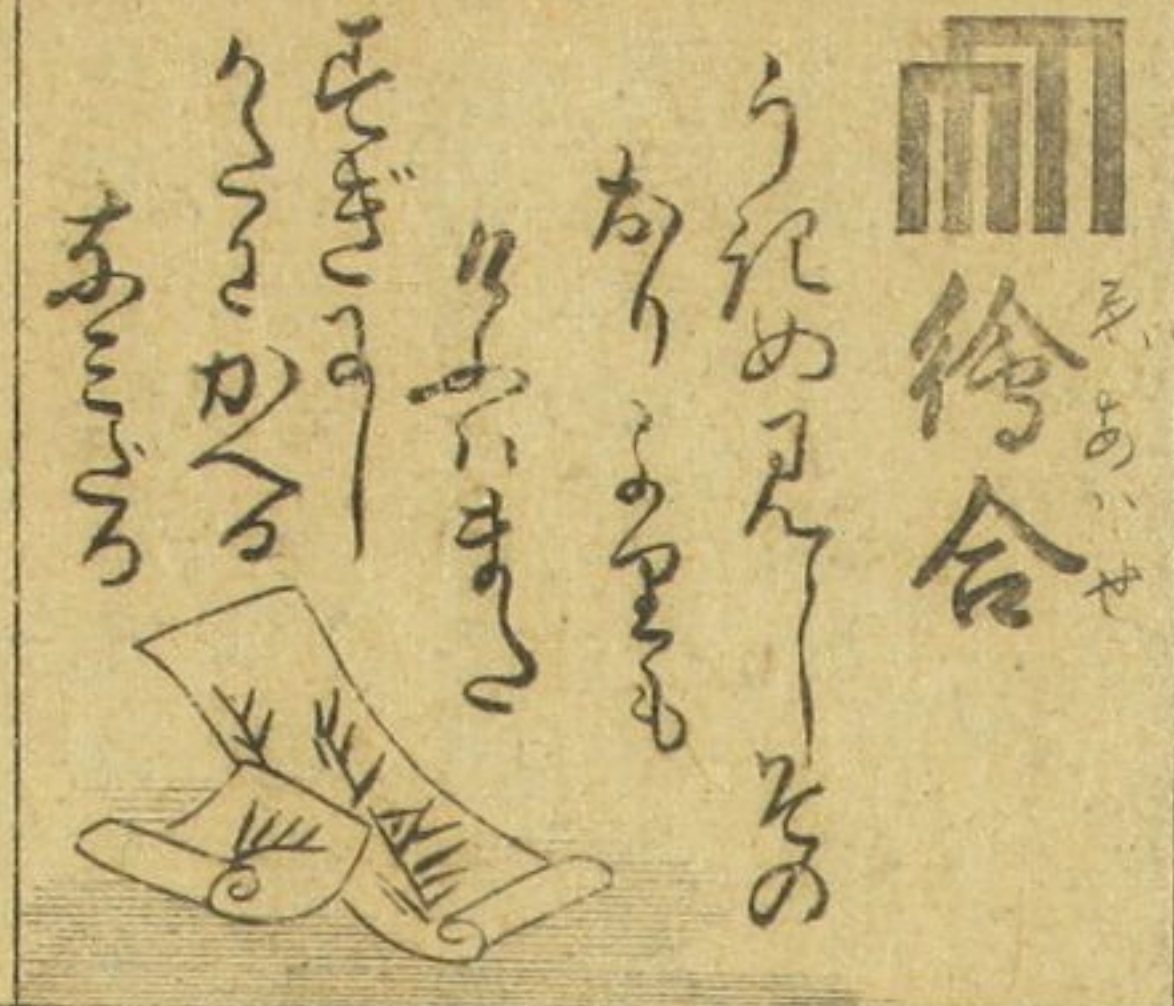 繪合
ゑあハせ
うきめ見しその
おりよりも
けふハまた
すぎにし
かたにかへる
なみだか